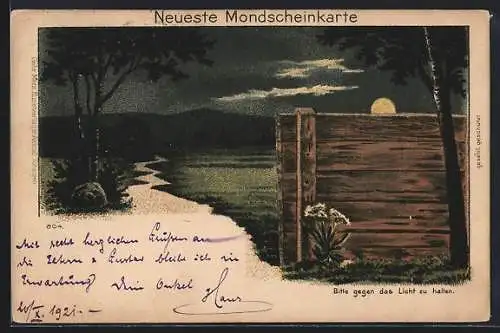 Neueste Mondscheinkarte
gesetzl. geschützt
804.
Bitte gegen das Licht zu halten.
Mit recht herzlichen Grüßen an
die Eltern & bleibe ich in
Erwartung Dein Onkel
Hans
X. 1921.